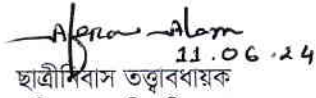 Afroza Alam
11.06.24
ছাত্রীনিবাস তত্ত্বাবধায়ক